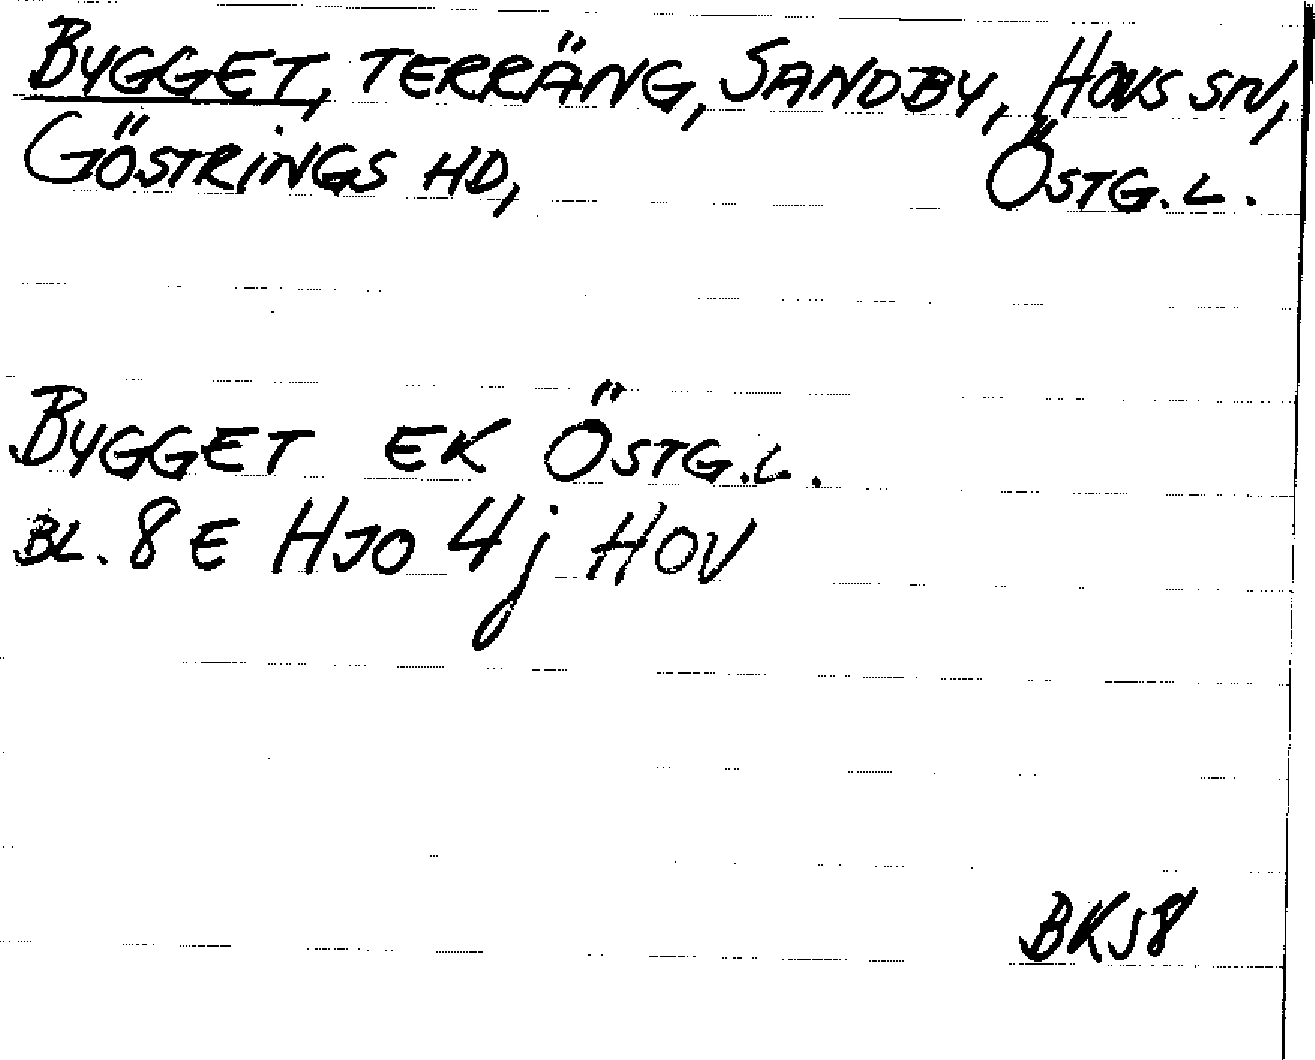 BYGGET, TERRÄNG, SANDBY, HOVS SN,
GÖSTRINGS HD, ÖSTG. L.
BYGGET EK ÖSTG. L.
BL. 8 E HJO 4j HOV
BKJ8